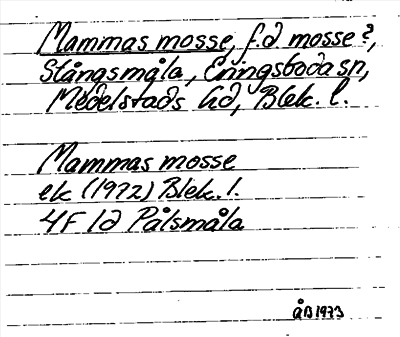 Mammas mosse, f.d. mosse?,
Stångsmåla, Eringsboda sn,
Medelstads hd, Blek. l.
Mammas mosse
ek (1972) Blek. l.
4F 1d Pålsmåla
ÅB 1973